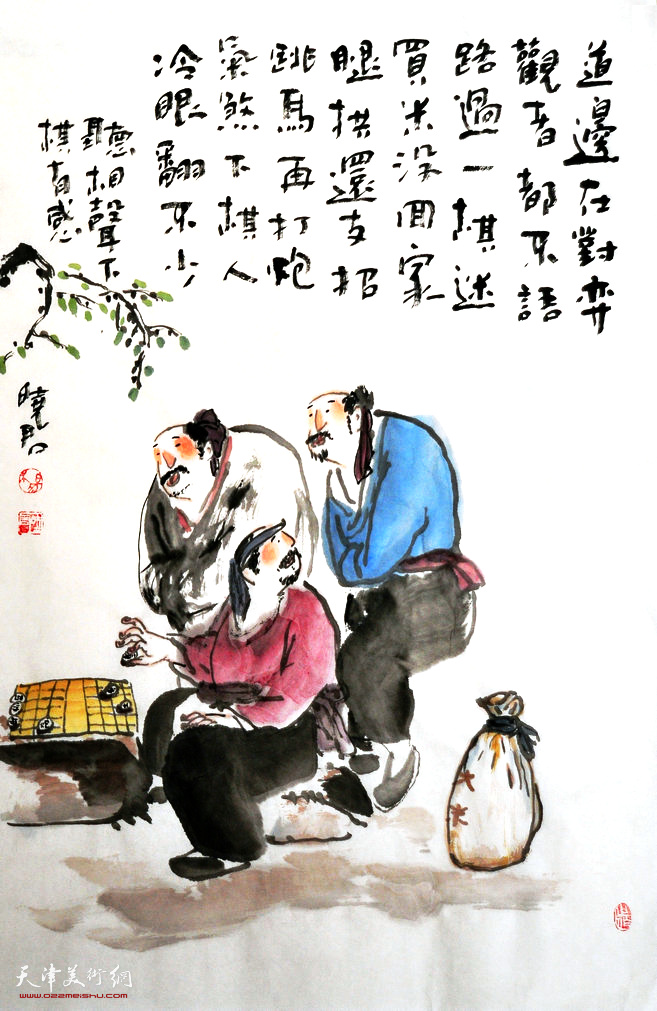 道邊在對弈
觀者都不語
路過一棋迷
買米沒回家
腿拱還支招
跳馬再打炮
氣煞下棋人
冷眼翻不少
聽相聲下
棋有感
曉君
大
大
天津美術網
www.022meishu.com